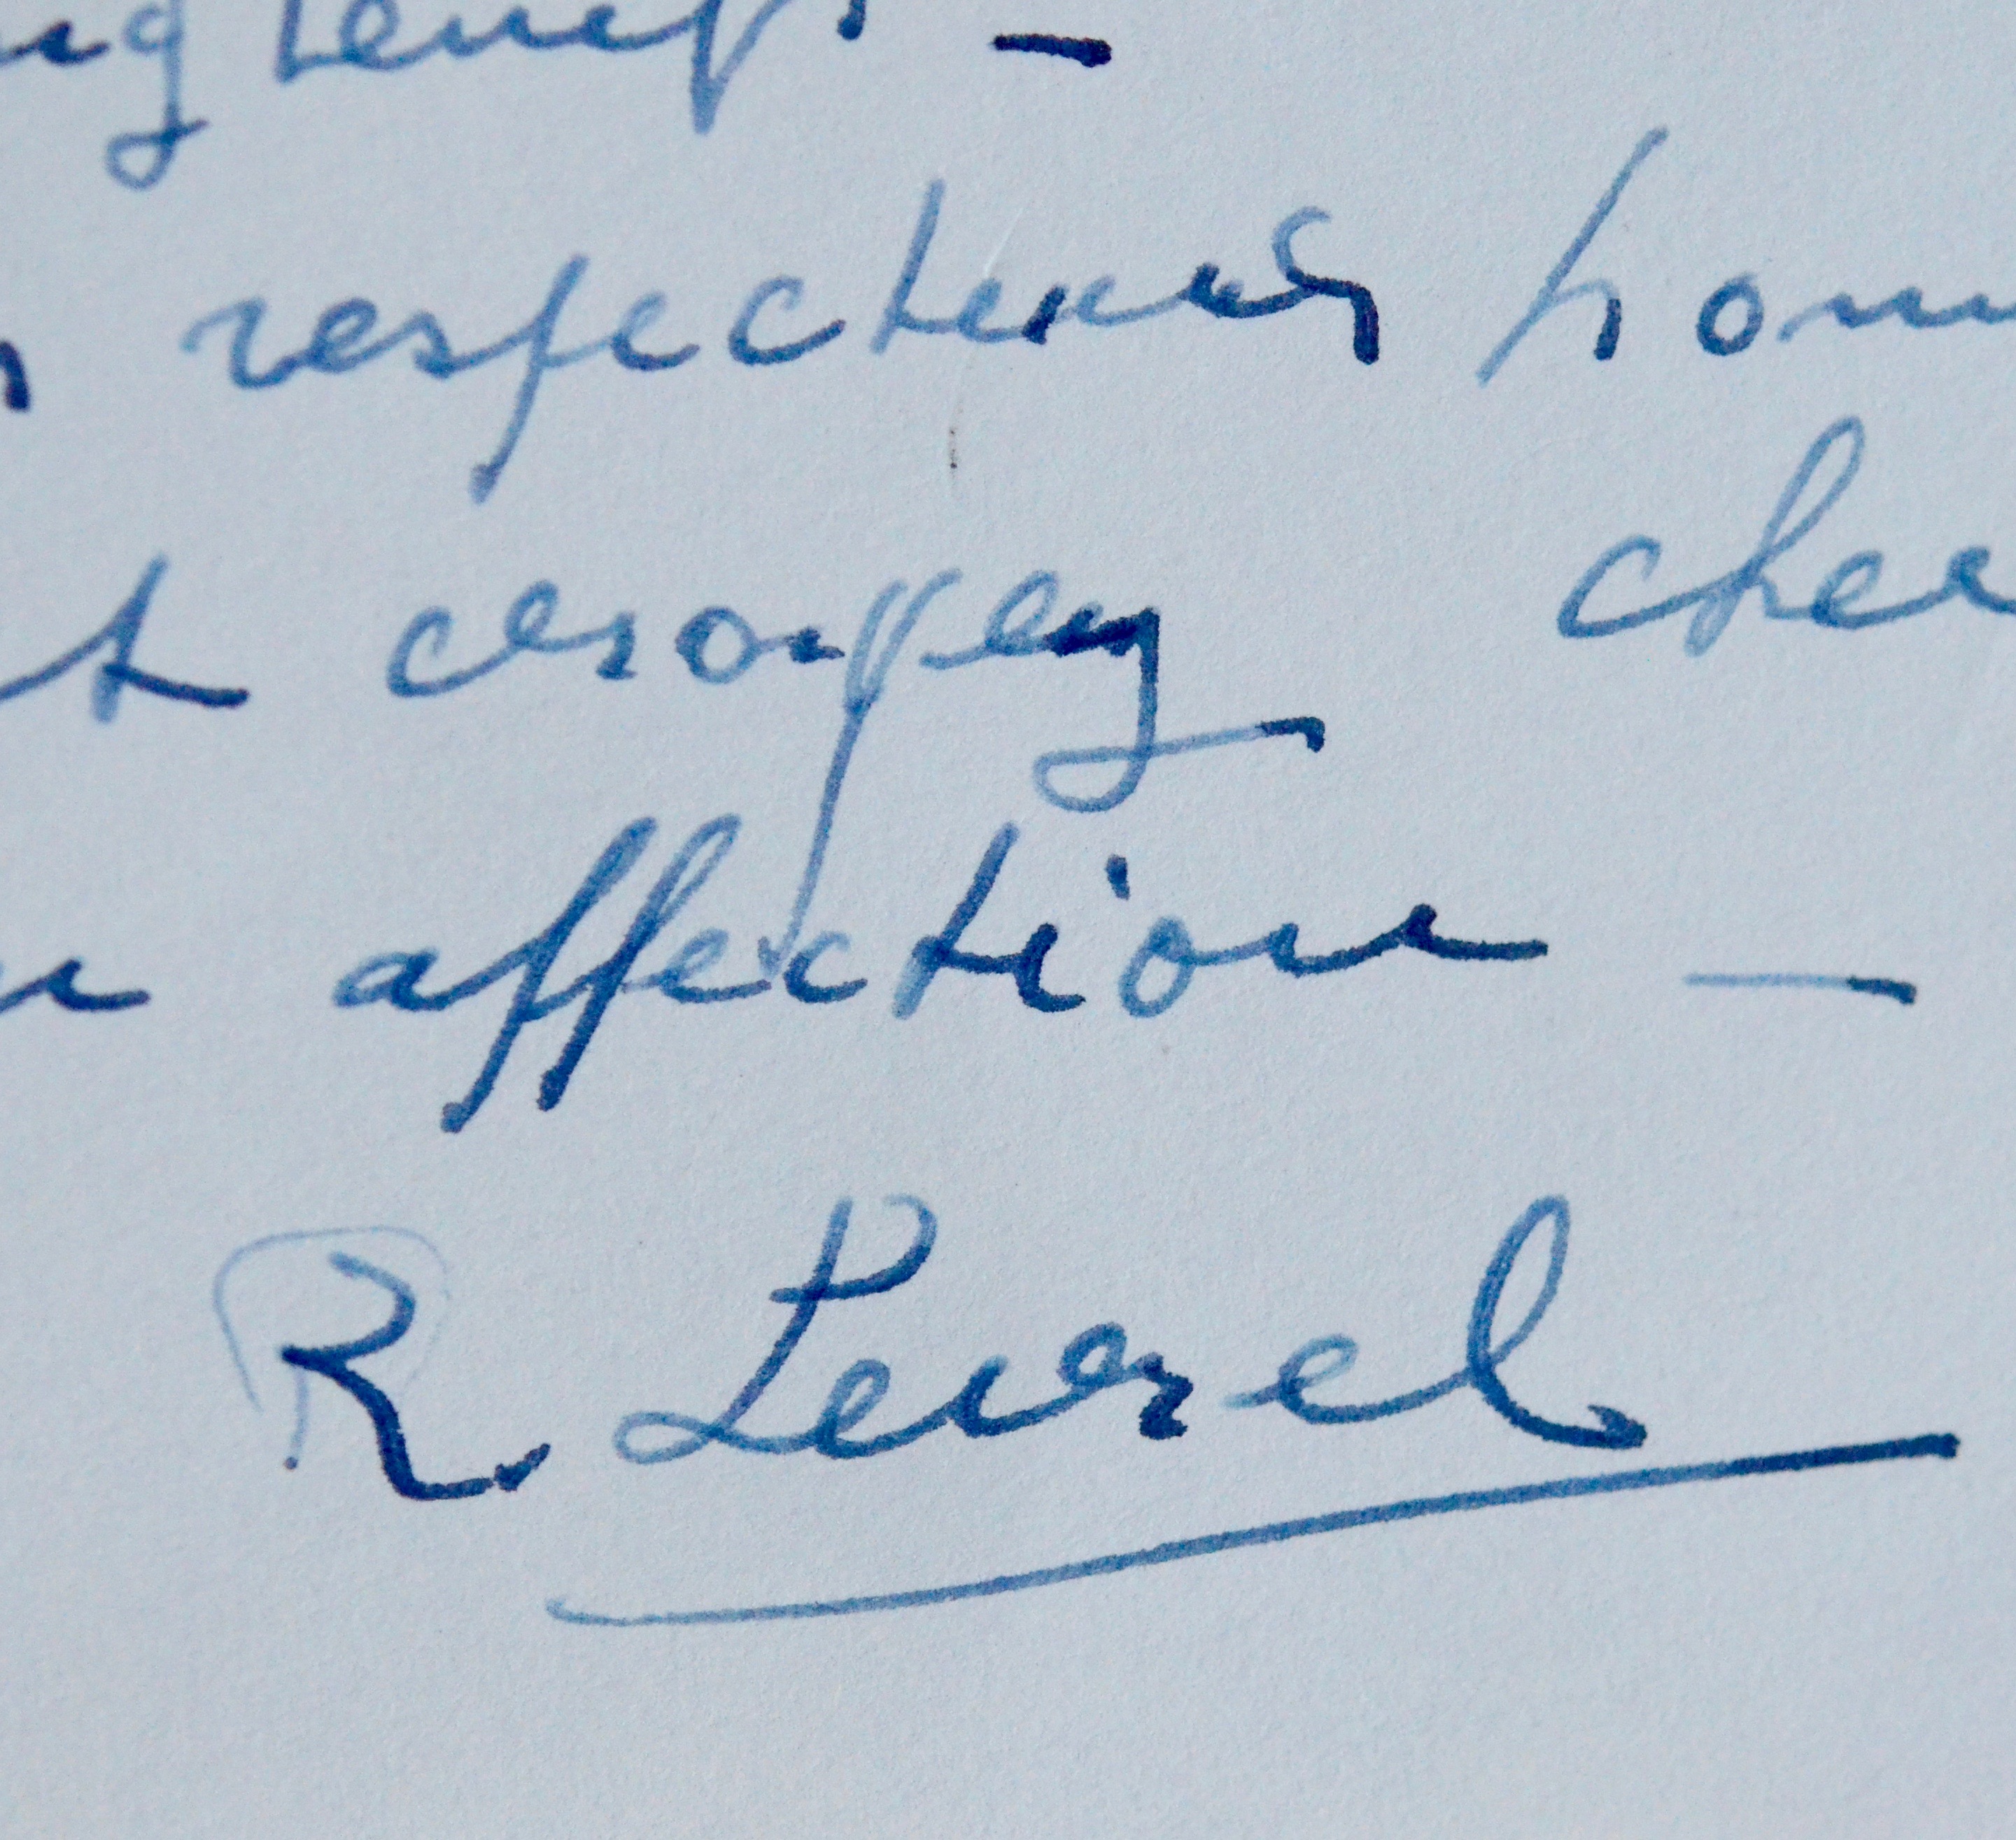 ngtemps. —
respectueux hom
t croyez cher
affection —
R. Levrel